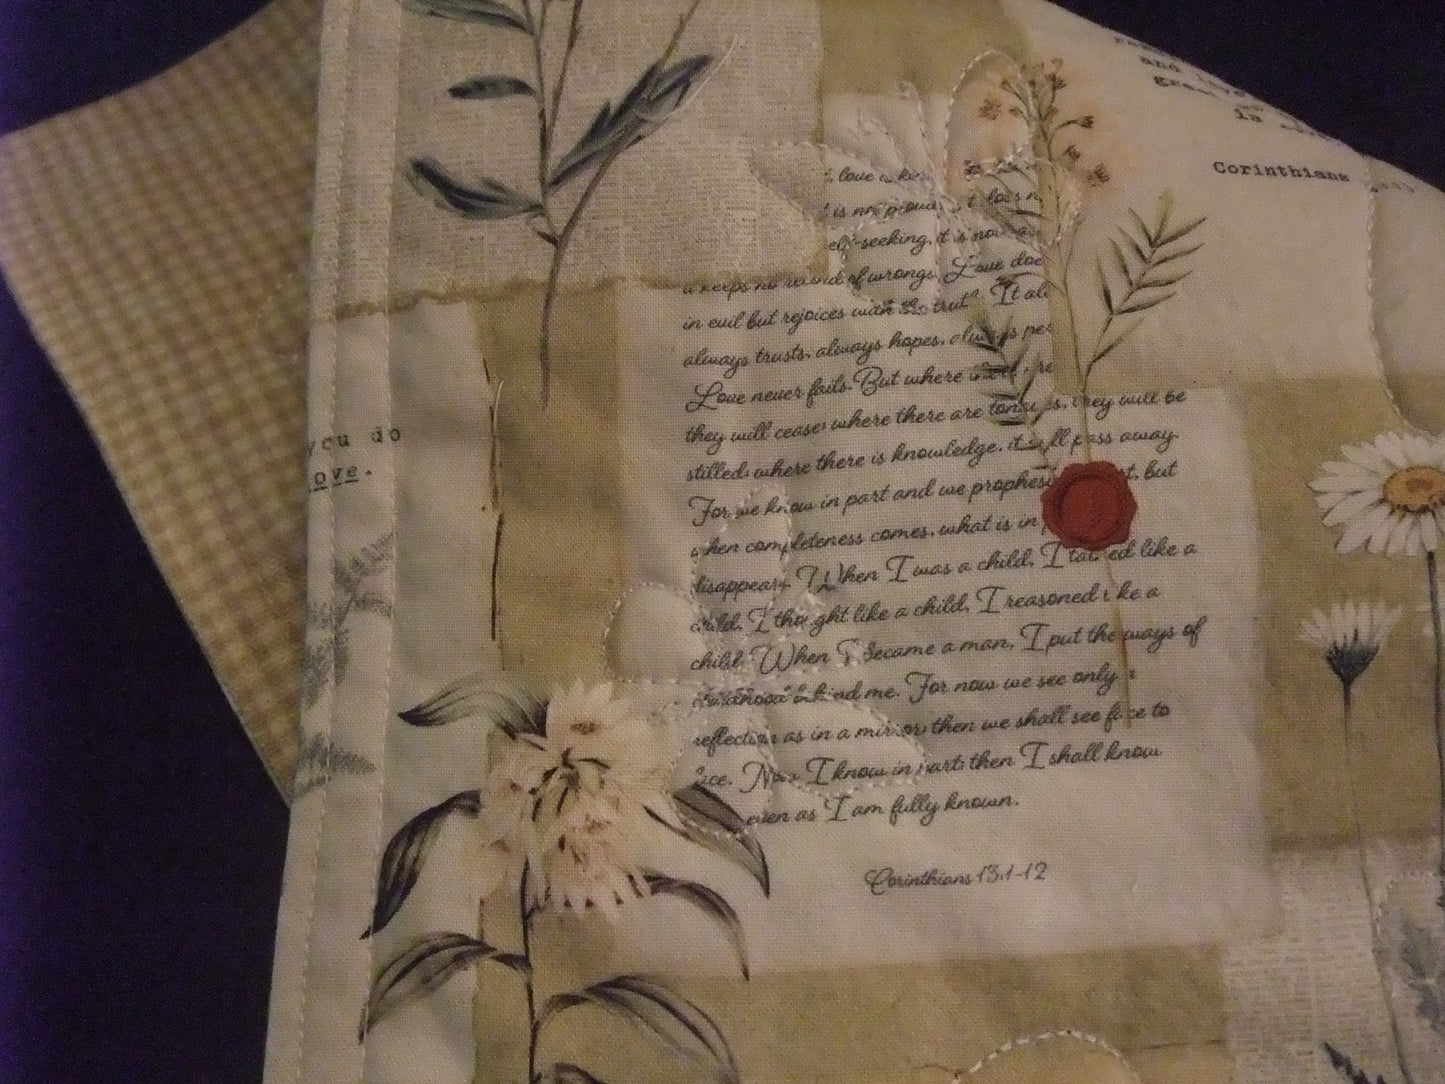 and
Corinthians
you do
love.
love
is not proud. It does
self-seeking, it is not
it keeps no record of wrongs. Love doe
in evil but rejoices with the truth. It al
always trusts, always hopes, always pe
Love never fails. But where
they will cease; where there are tongues, they will be
stilled; where there is knowledge, it will pass away.
For we know in part and we prophesy but
when completeness comes, what is in
disappears. When I was a child, I talked like a
child, I thought like a child, I reasoned like a
child. When I became a man, I put the ways of
behind me. For now we see only
reflection as in a mirror; then we shall see face to
face. Now I know in part; then I shall know
even as I am fully known.
Corinthians 13:1-12